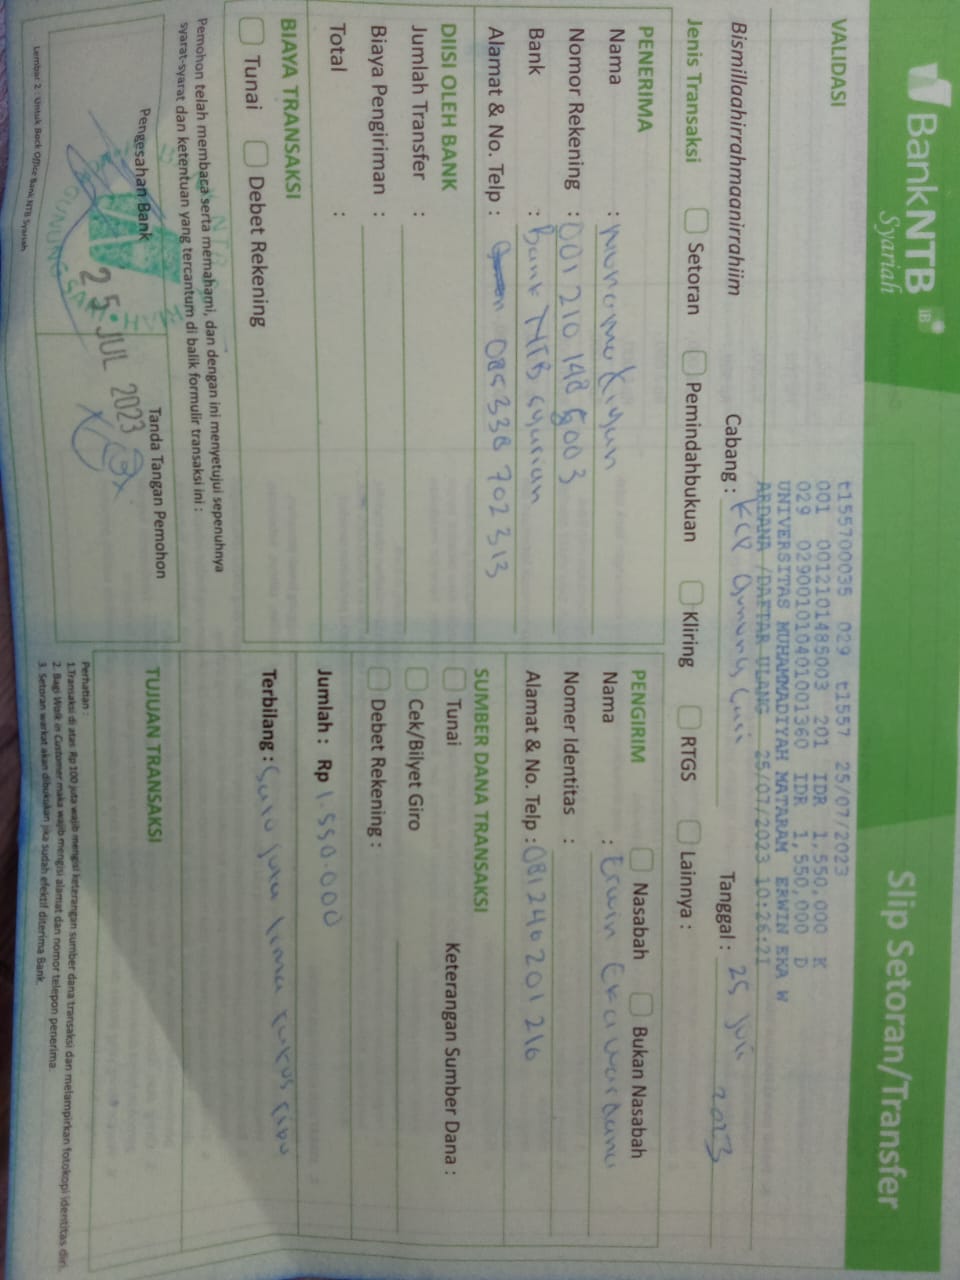 BankNTB
Syariah
iB
Slip Setoran/Transfer
VALIDASI
t155700035 029 t1557 25/07/2023
001 0012101485003 201 IDR 1,550,000 K
029 0290010104010013​60 IDR 1,550,000 D
UNIVERSITAS MUHAMMADIYAH MATARAM ERWIN EKA W
ARDANA /DAFTAR ULANG 25/07/2023 10:26:21
Bismillaahirrahmaanirrahiim
Cabang : KCP Gunung Sari
Tanggal : 25 Juli 2023
Jenis Transaksi
Setoran
Pemindahbukuan
Kliring
RTGS
Lainnya :
PENERIMA
Nama :
Nomor Rekening : 001 210 148 5003
Bank : Bank NTB syariah
Alamat & No. Telp : 085 338 702 313
PENGIRIM
Nasabah
Bukan Nasabah
Nama : Erwin Eka wardana
Nomer Identitas :
Alamat & No. Telp : 081 246 201 216
DIISI OLEH BANK
Jumlah Transfer :
Biaya Pengiriman :
Total :
SUMBER DANA TRANSAKSI
Tunai
Cek/Bilyet Giro
Debet Rekening :
Keterangan Sumber Dana :
Jumlah : Rp 1.550.000
Terbilang : Satu juta lima ratus ribu
BIAYA TRANSAKSI
Tunai
Debet Rekening
Pemohon telah membaca serta memahami, dan dengan ini menyetujui sepenuhnya
syarat-syarat dan ketentuan yang tercantum di balik formulir transaksi ini :
Pengesahan Bank
Tanda Tangan Pemohon
25 JUL 2023
TUJUAN TRANSAKSI
Perhatian :
1.Transaksi di atas Rp 100 juta wajib mengisi keterangan sumber dana transaksi dan melampirkan fotokopi identitas diri.
2. Bagi Walk in Customer maka wajib mengisi alamat dan nomor telepon penerima.
3. Setoran warkat akan dibukukan jika sudah efektif diterima Bank.
Lembar 2 : Untuk Back Office Bank NTB Syariah